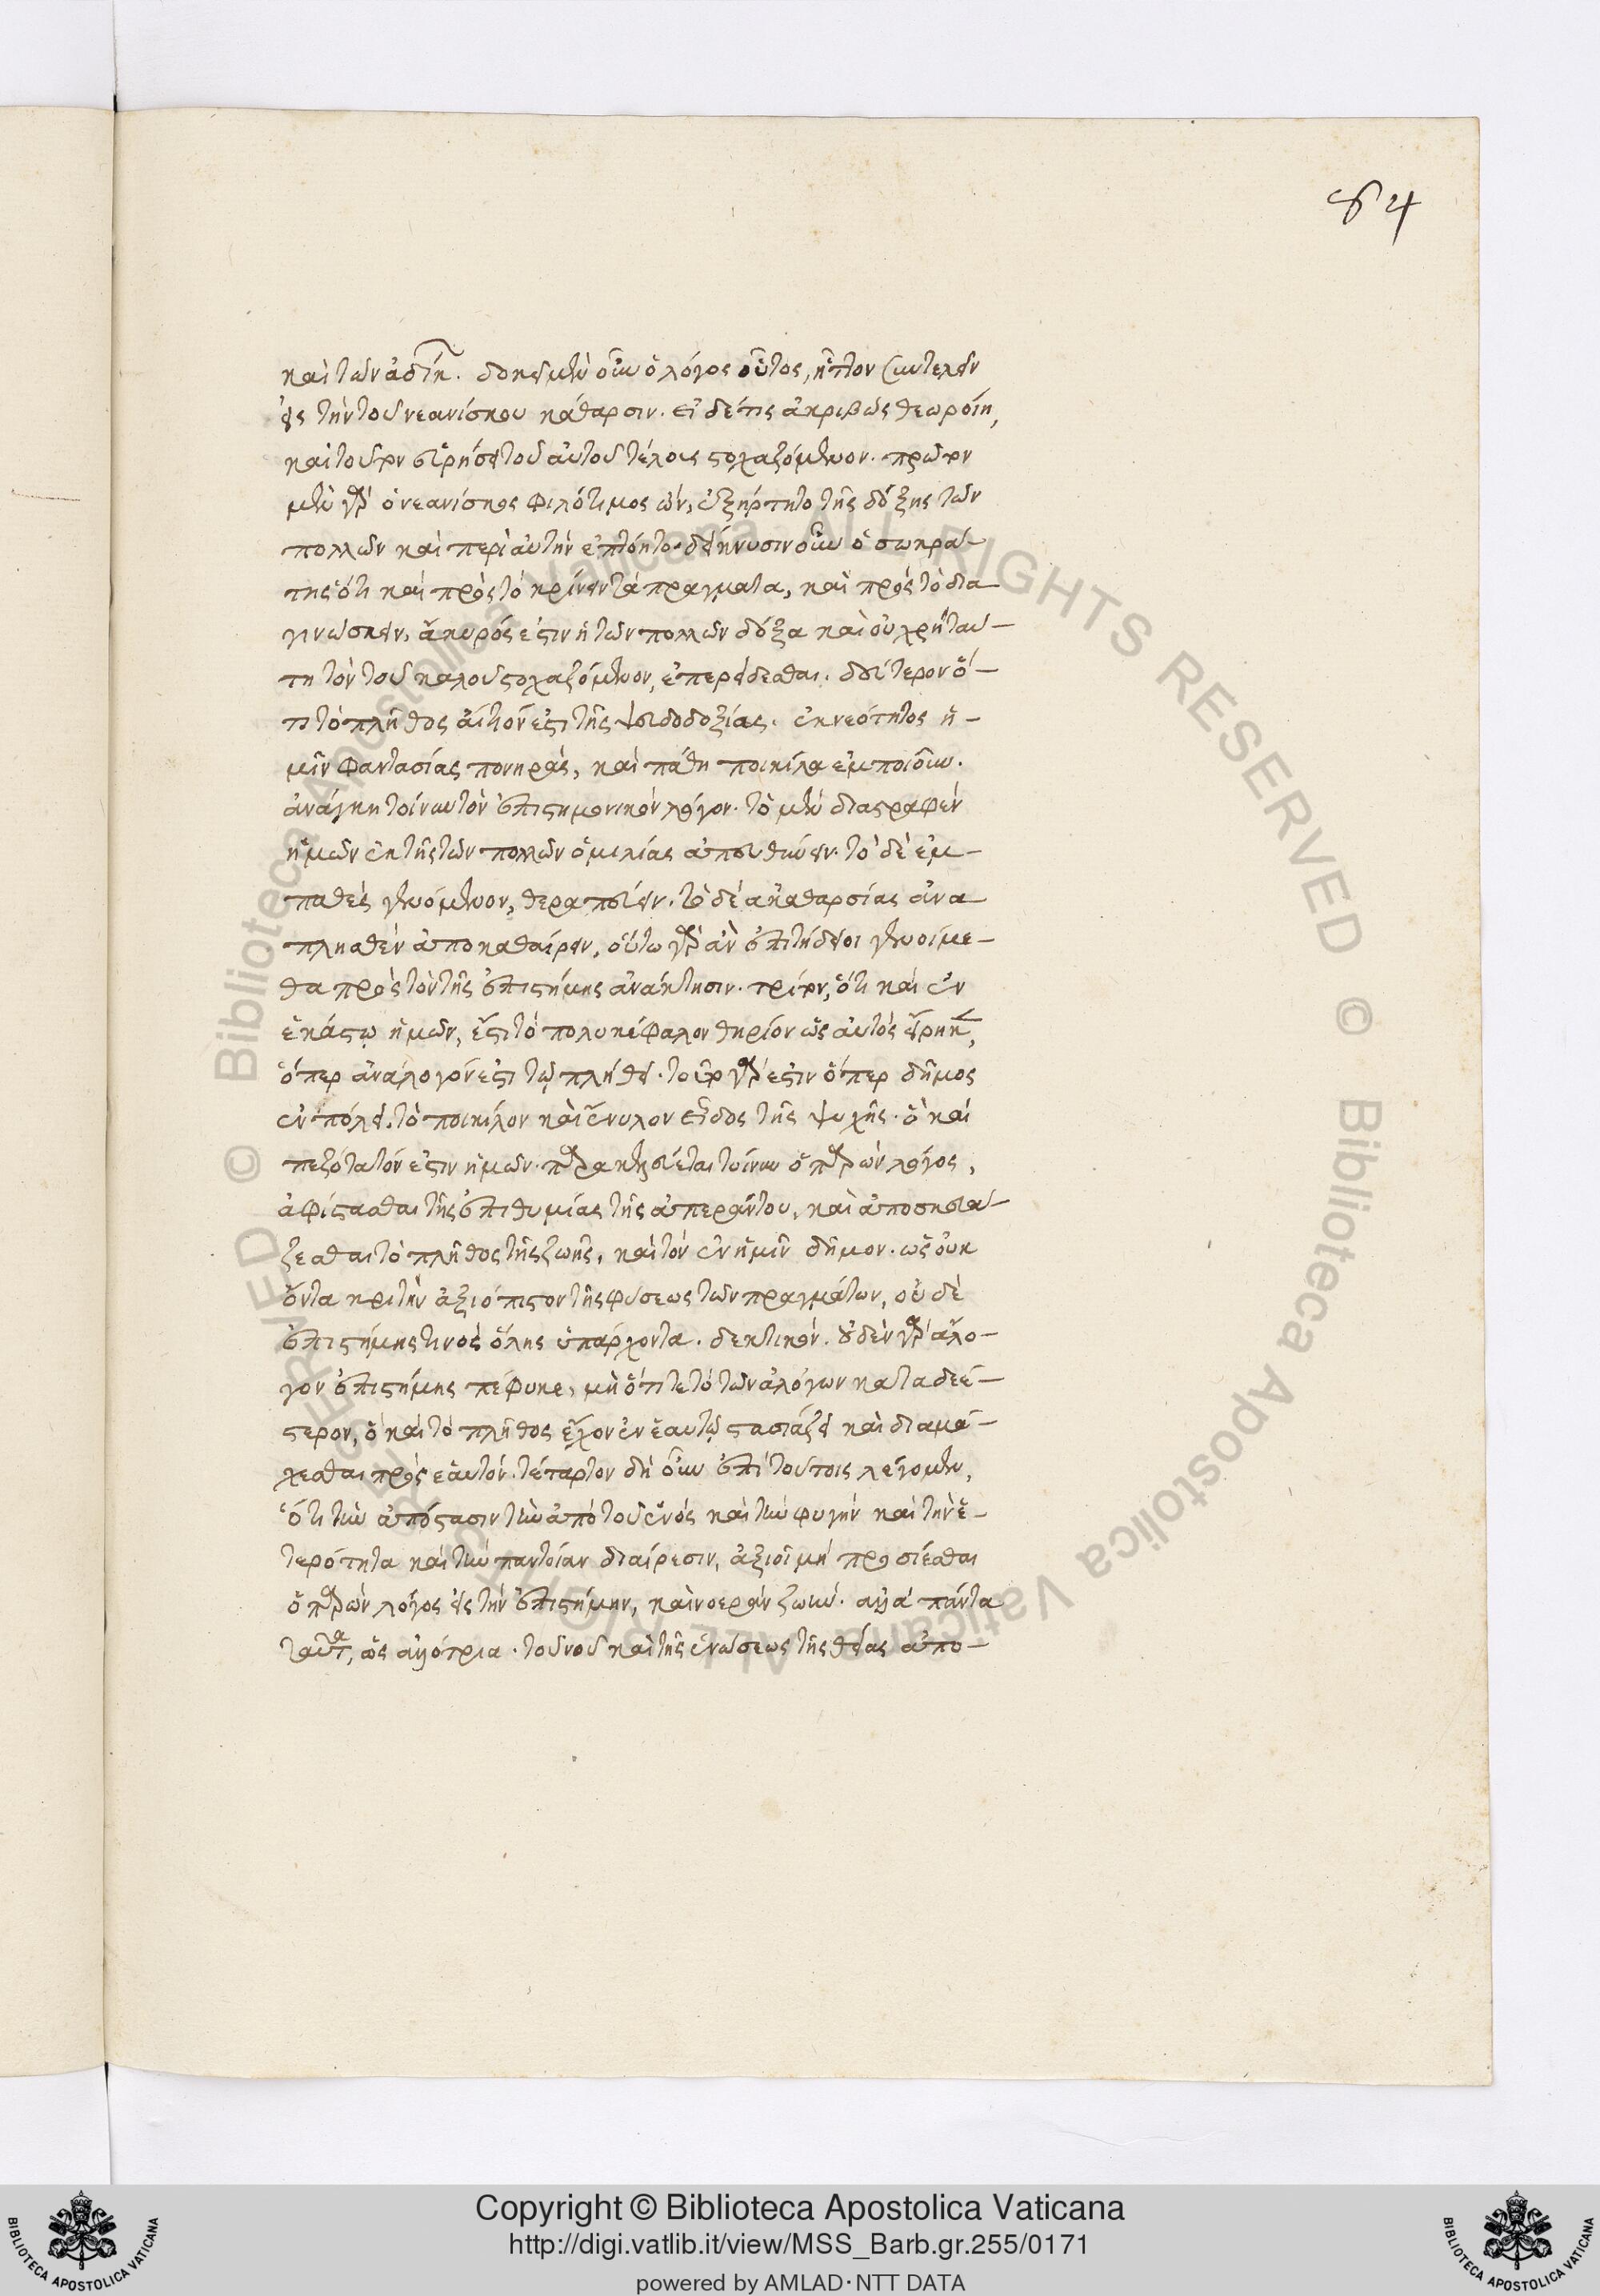 84
καὶ τῶν ἀδίκ. δοκεῖ μὲν οὖν ὁ λόγος οὗτος, ἧττον συντελεῖν
εἰς τὴν τοῦ νεανίσκου κάθαρσιν. εἰ δέ τις ἀκριβῶς θεωροίη,
καὶ τοῦτον εὑρήσει τοῦ αὐτοῦ τέλους στοχαζόμενον. πρῶτον
μὲν γὰρ ὁ νεανίσκος φιλότιμος ὢν, ἐξήρτητο τῆς δόξης τῶν
πολλῶν καὶ περὶ αὐτὴν ἐπτόητο. δείκνυσιν οὖν ὁ σωκρά-
της ὅτι καὶ πρὸς τὸ κρίνειν τὰ πράγματα, καὶ πρὸς τὸ δια
γινώσκειν, ἄκυρός ἐστιν ἡ τῶν πολλῶν δόξα καὶ οὐ χρὴ ταύ-
τη τὸν τοῦ καλοῦ στοχαζόμενον, ἐπερείδεσθαι. δεύτερον ὅ-
τι τὸ πλῆθος αἴτιόν ἐστι τῆς ψευδοδοξίας. ἐκ νεότητος ἡ-
μῖν φαντασίας πονηρὰς, καὶ πάθη ποικίλα ἐμποιοῦν.
ἀνάγκη τοίνυν τὸν ἐπιστημονικὸν λόγον. τὸ μὲν διαστραφὲν
ἡμῶν ἐκ τῆς τῶν πολλῶν ὁμιλίας ἀπευθύνειν. τὸ δὲ ἐμ-
παθὲς γενόμενον, θεραπεύειν. τὸ δὲ ἀκαθαρσίας ἀνα
πλησθὲν ἀποκαθαίρειν, οὕτω γὰρ ἂν ἐπιτήδειοι γενοίμε-
θα πρὸς τὸν τῆς ἐπιστήμης ἀνάκτησιν. τρίτον, ὅτι καὶ ἐν
ἑκάστῳ ἡμῶν, ἔστι τὸ πολυκέφαλον θηρίον ὡς αὐτὸς εἴρηκ,
ὅπερ ἀνάλογόν ἐστι τῷ πλήθει. τοῦτο γάρ ἐστιν ὅπερ δῆμος
ἐν πόλει. τὸ ποικίλον καὶ ἔνυλον εἶδος τῆς ψυχῆς. ὃ καὶ
πεζότατόν ἐστιν ἡμῶν. παρακελεύεται τοίνυν ὁ παρὼν λόγος,
ἀφίστασθαι τῆς ἐπιθυμίας τῆς ἀπεράντου, καὶ ἀποσκευά-
ζεσθαι τὸ πλῆθος τῆς ζωῆς, καὶ τὸν ἐν ἡμῖν δῆμον. ὡς οὐκ
ὄντα κριτὴν ἀξιόπιστον τῆς φύσεως τῶν πραγμάτων, οὐδὲ
ἐπιστήμης τινὸς ὅλης ὑπάρχοντα. δεκτικόν. οὐδὲν γὰρ ἄλο-
γον ἐπιστήμης πέφυκε, μὴ ὅτι τε τὸ τῶν ἀλόγων καταδεέ-
στερον, ὃ καὶ τὸ πλῆθος ἔχον ἐν ἑαυτῷ στασιάζει καὶ διαμά-
χεσθαι πρὸς ἑαυτόν. τέταρτον δὴ οὖν ἐπὶ τούτοις λέγομεν,
ὅτι τὴν ἀπόστασιν τὴν ἀπὸ τοῦ ἑνὸς καὶ τὴν φυγὴν καὶ τὴν ἑ-
τερότητα καὶ τὴν παντοίαν διαίρεσιν, ἀξιοῖ μὴ προσίεσθαι
ὁ παρὼν λόγος εἰς τὴν ἐπιστήμην, καὶ νοερὰν ζωήν. ἀλλὰ πάντα
ταῦτα, ὡς ἀλλότρια. τοῦ νοῦ καὶ τῆς ἑνώσεως τῆς θείας ἀπο-
© Biblioteca Apostolica Vaticana ALL RIGHTS RESERVED © Biblioteca Apostolica Vaticana ALL RIGHTS RESERVED
Copyright © Biblioteca Apostolica Vaticana
http://digi.vatlib.it/view/MSS_Barb.gr.255/0171
powered by AMLAD·NTT DATA
BIBLIOTECA APOSTOLICA VATICANA
BIBLIOTECA APOSTOLICA VATICANA